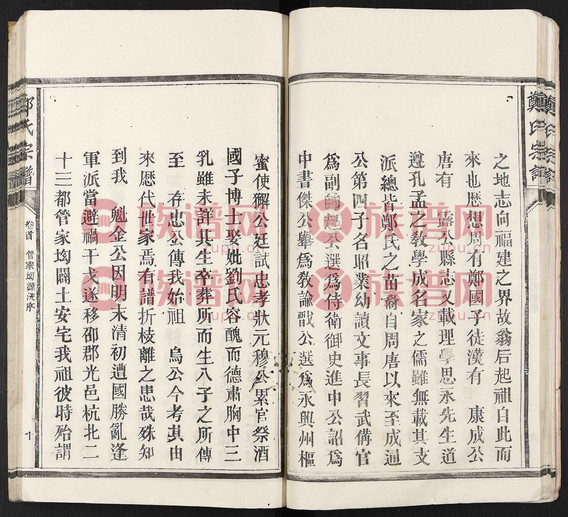 之地志向福建之界故翁后起祖自此而
來也歷想周有鄭國子徒漢有 康成公
唐有 縣志可載理學思永先生道
遵孔孟之教學成名家之儒雖無載其支
派總皆鄭氏之苗裔自周唐以來至成通
公第四子名昭業幼讀文事長習武備官
為副師 公選為侍衛御史進中公詔為
中書傑公舉為教諭戩公選為永興州樞
蜜使獬公廷試忠孝狀元穆公累官祭酒
國子博士娶妣劉氏容醜而德肅胸中三
乳雖未詳其生卒葬所而生八子之所傳
至 存忠公傳我始祖 烏公今考其由
來歷代世家焉有譜折枝離之患哉殊知
到我 魁金公因明末清初遭國勝亂逢
軍派當避禍干戈遂移邵郡光邑杭北二
十三都管家坳闢土安宅我祖彼時殆謂
鄭氏宗譜
卷首 管家坳源流序
鄭氏宗譜
族谱网
zupu.cn